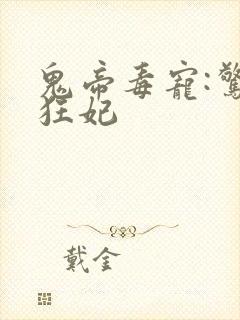 鬼帝毒寵:驚
狂妃
戴金